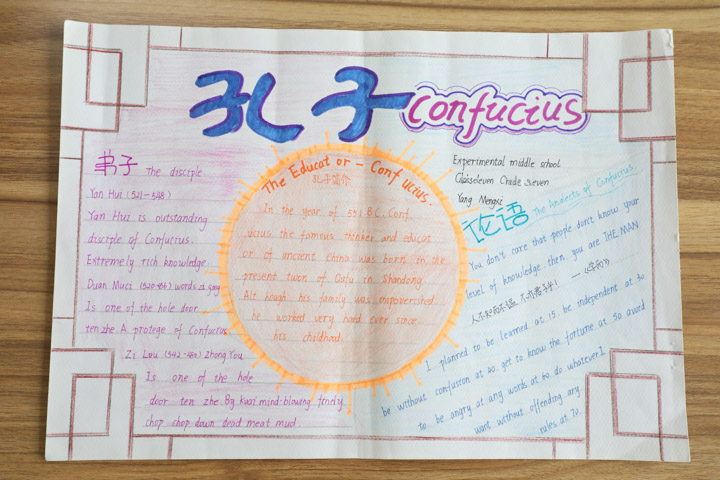 孔子 confucius
弟子 The disciple
Yan Hui (521-548)
Yan Hui is outstanding
disciple of Confucius.
Extremely rich knowledge
Duan Muci (520-456) words zi gong
Is one of the hole door
ten zhe A protege of Confucius
Zi Lou (542-480) Zhong You
Is one of the hole
door ten zhe Bg kuai mind-blowing
chop chop down dead meat mud
The Educator - Confucius.
孔子简介
In the year of 551 B.C. Conf
ucius the famous thinker and educat
or of ancient China was born in the
present twon of Qufu in Shandong
Alt hough his family was empoverished
he worked very hard ever since
his childhood.
Experimental middle school
Yang Mengxi
论语 The Analects of Confucius
You don't care that people don't know your
level of knowledge then you are THE MAN
人不知而不愠,不亦君子乎!
I planned to be learned at 15. be independent at 30
be without confusion at 40. get to know the fortune at 50 avoid
to be angry at any words at 60 do whatever I
want without offending any
rules at 70.